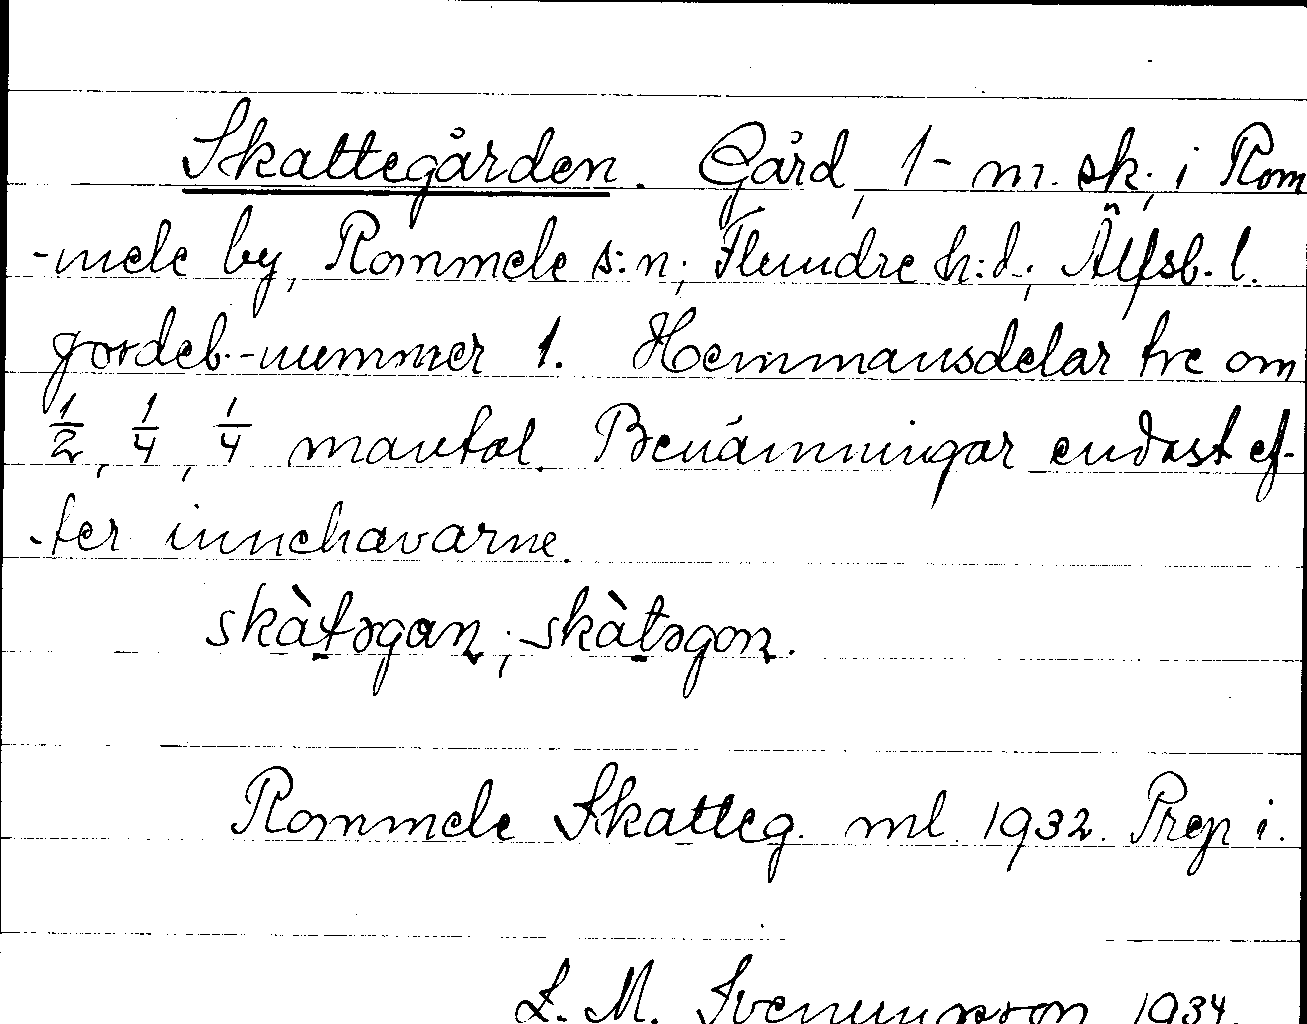 Skattegården. Gård, 1- m. sk. i Rom
-mele by, Rommele s:n; Flundre h:d; Älfsb. l.
Jordeb.-nummer 1. Hemmansdelar tre om
1/2, 1/4, 1/4 mantal. Benämningar endast ef-
-ter innehavarne.
skàtəgan; skàtəgon.
Rommele Skatteg. ml 1932. Prep i.
L. M. Svenungson 1934.